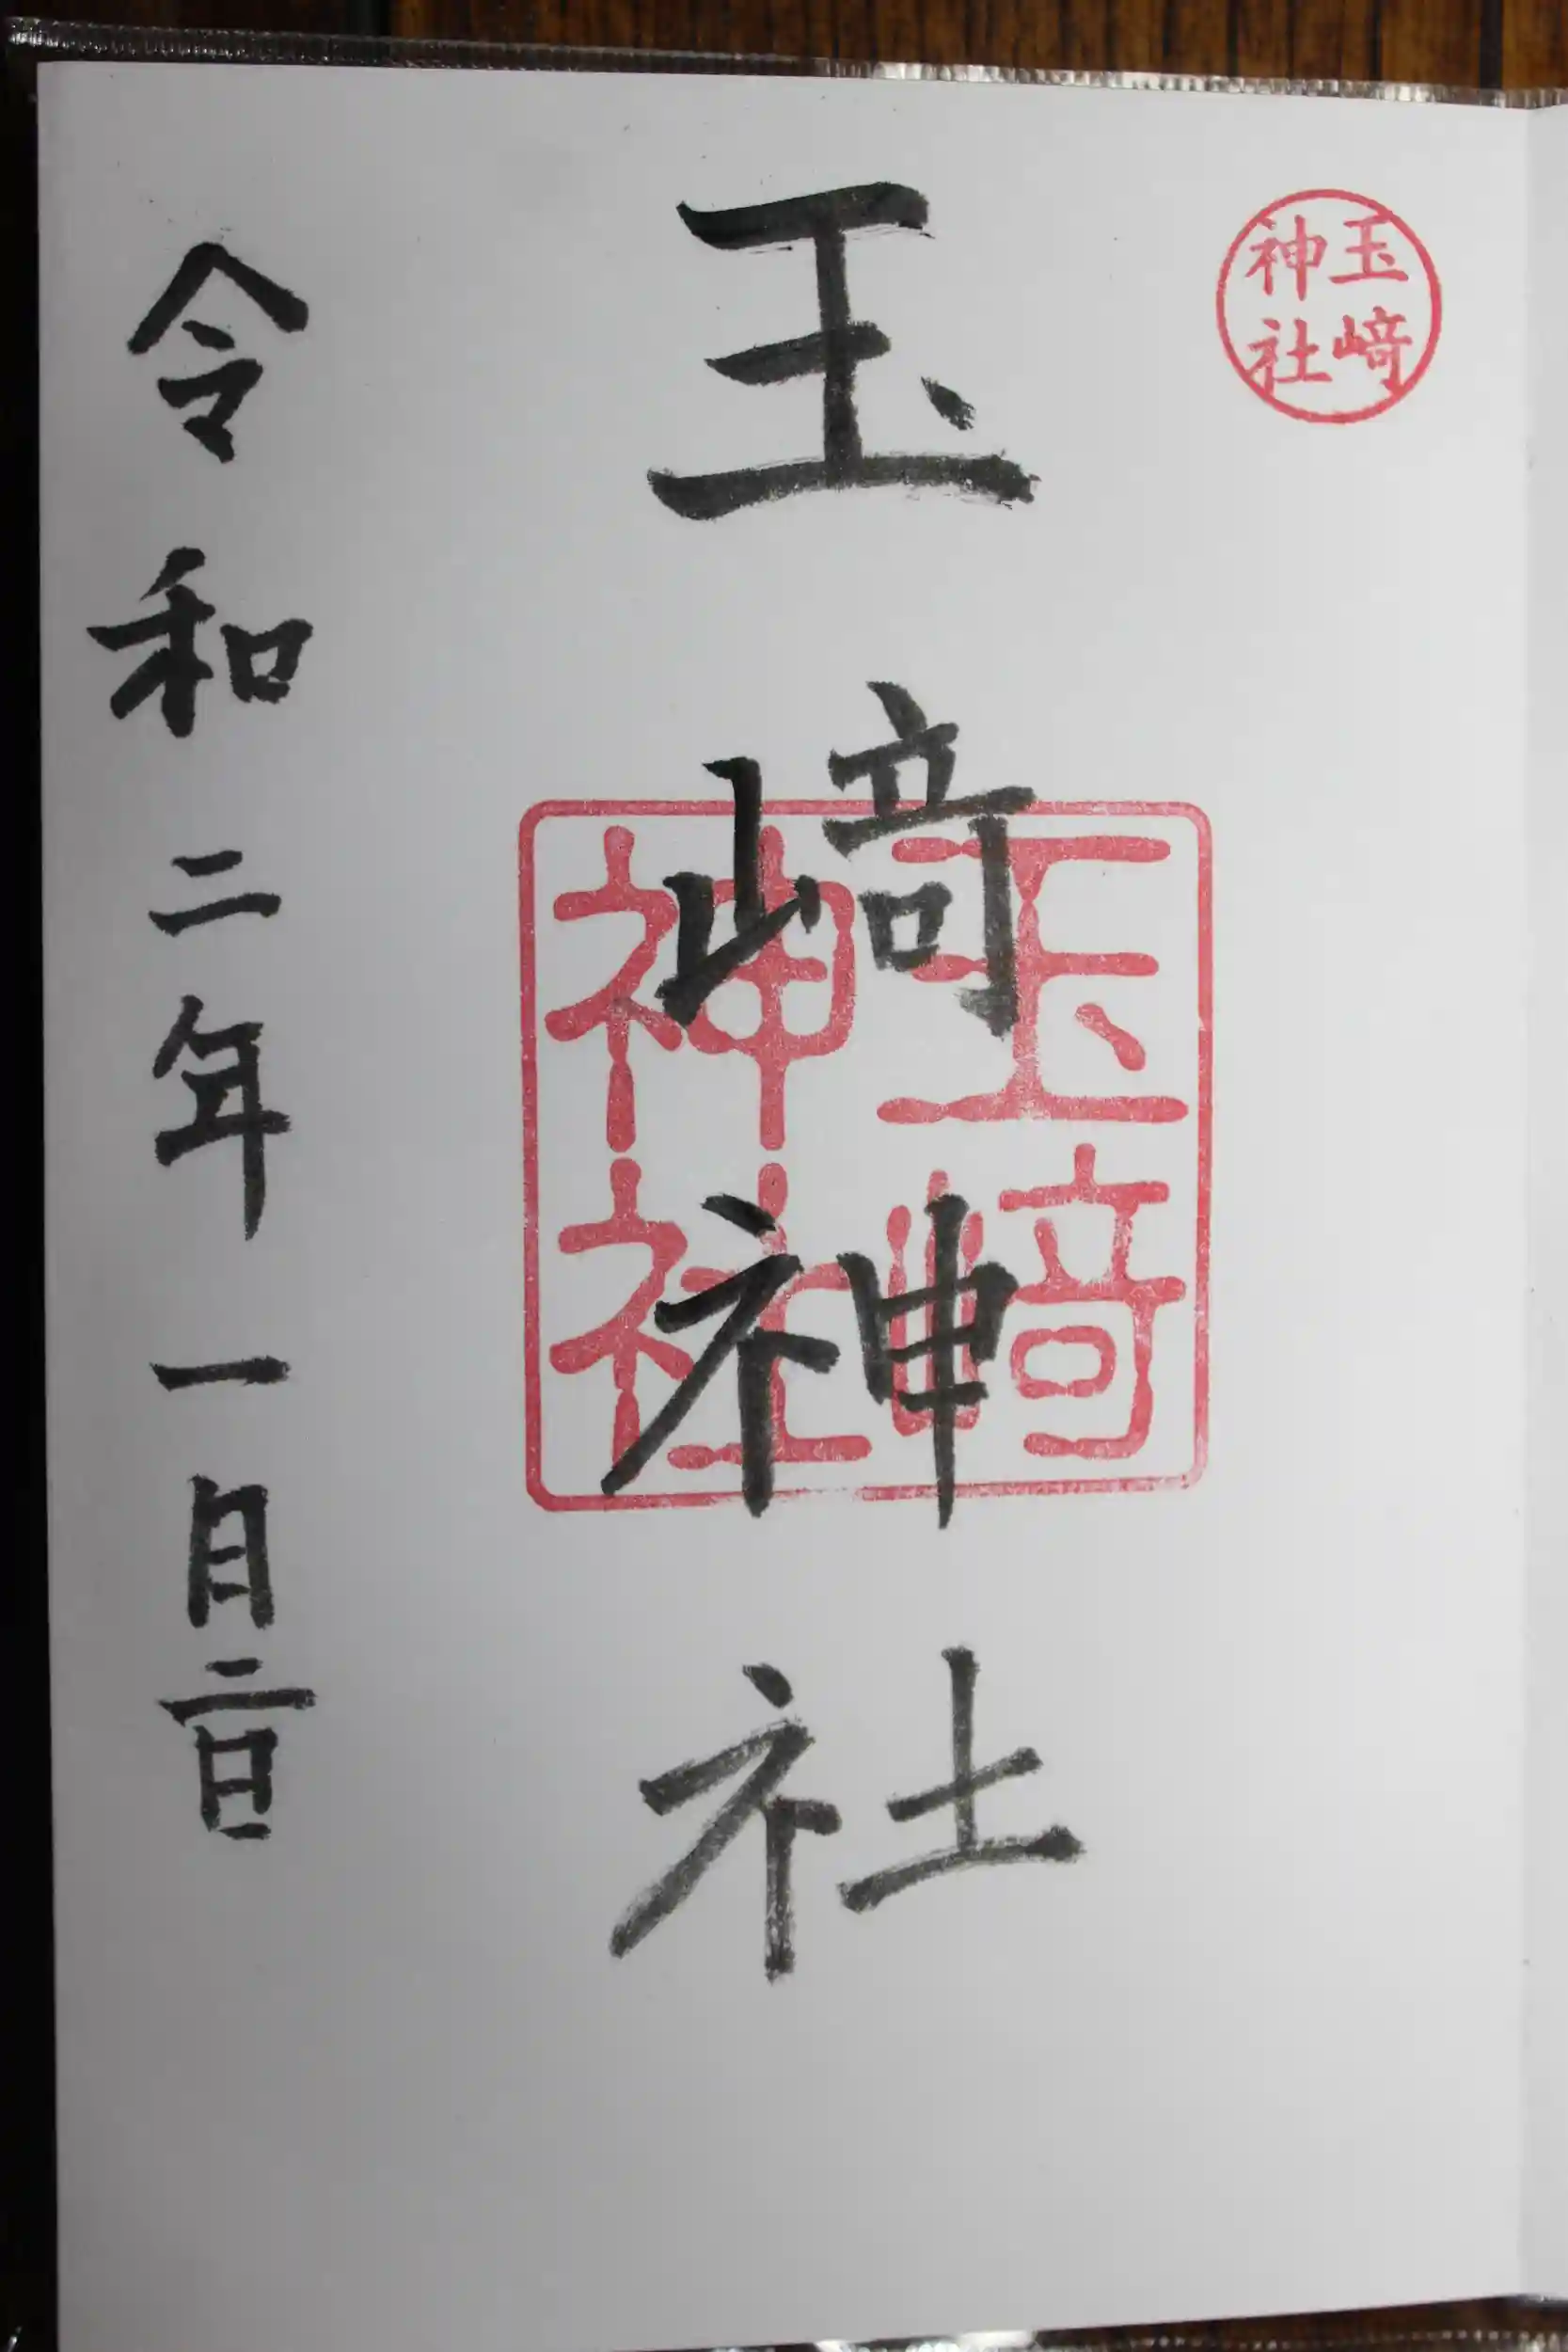 玉﨑
神社
玉﨑神社
玉﨑
神社
令和二年一月二日